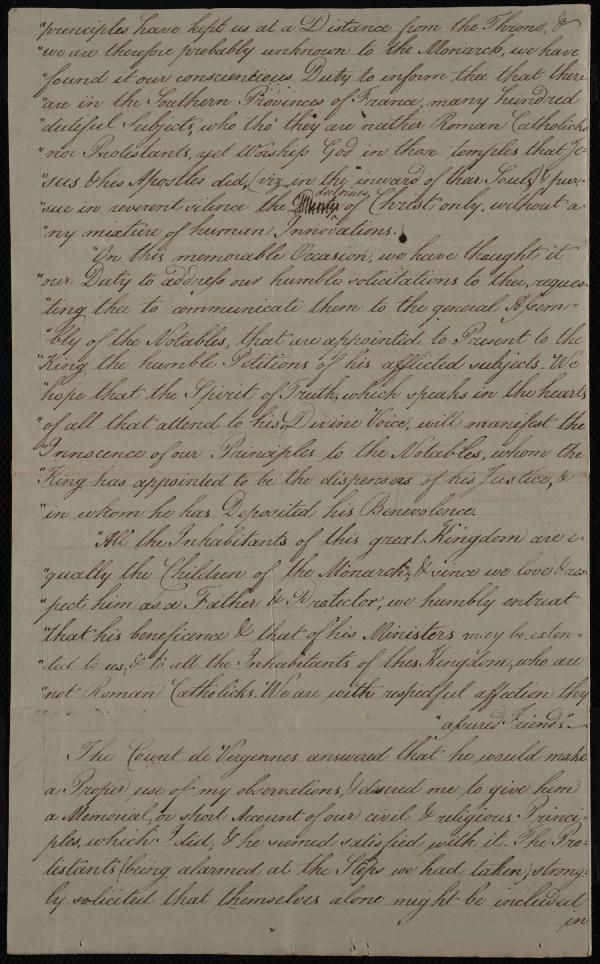 "principles have kept us at a Distance from the Throne, &
"we are therefore probably unknown to the Monarch, we have
"found it our conscientious Duty to inform thee that there
"are in the Southern Provinces of France, many hundred
"dutiful Subjects, who tho' they are neither Roman Catholicks
"nor Protestants, yet Worship God in those temples that Je-
"sus & his Apostles did, (viz in the inward of their Souls) & pur-
doctrines
"sue in reverent silence the of Christ only, without a-
"ny mixture of human Innovations.
"On this memorable Occasion, we have thought it
"our Duty to address our humble solicitations to thee, reques-
"ting thee to communicate them to the general Assem-
"bly of the Notables, that are appointed to Present to the
"King the humble Petitions of his afflicted subjects. We
"hope that the Spirit of Truth, which speaks in the hearts
"of all that attend to his Divine Voice, will manifest the
"Innocence of our Principles to the Notables, whom the
"King has appointed to be the dispensers of his Justice, &
"in whom he has Deposited his Benevolence.
"All the Inhabitants of this great Kingdom are e-
"qually the Children of the Monarch; & since we love & res-
"pect him as a Father & Protector, we humbly entreat
"that his beneficence & that of his Ministers may be exten-
"ded to us, & to all the Inhabitants of this Kingdom, who are
"not Roman Catholicks. We are with respectful affection thy
"assured Friends"
The Count de Vergennes answered that he would make
a Proper use of my observations, & desired me to give him
a Memorial, or short Account of our civil & religious Princi-
ples, which I did, & he seemed satisfied with it. The Pro-
testants (being alarmed at the Steps we had taken) strong-
ly solicited that themselves alone might be included
in